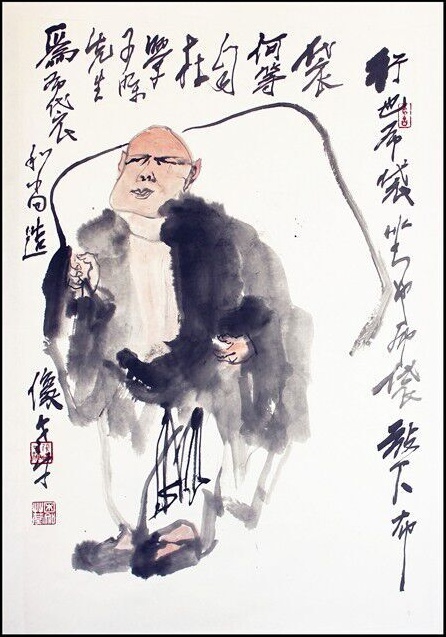 行也布袋坐也布袋放下布
袋
何等
自
在
學
子
先生
爲布袋和尚造
像